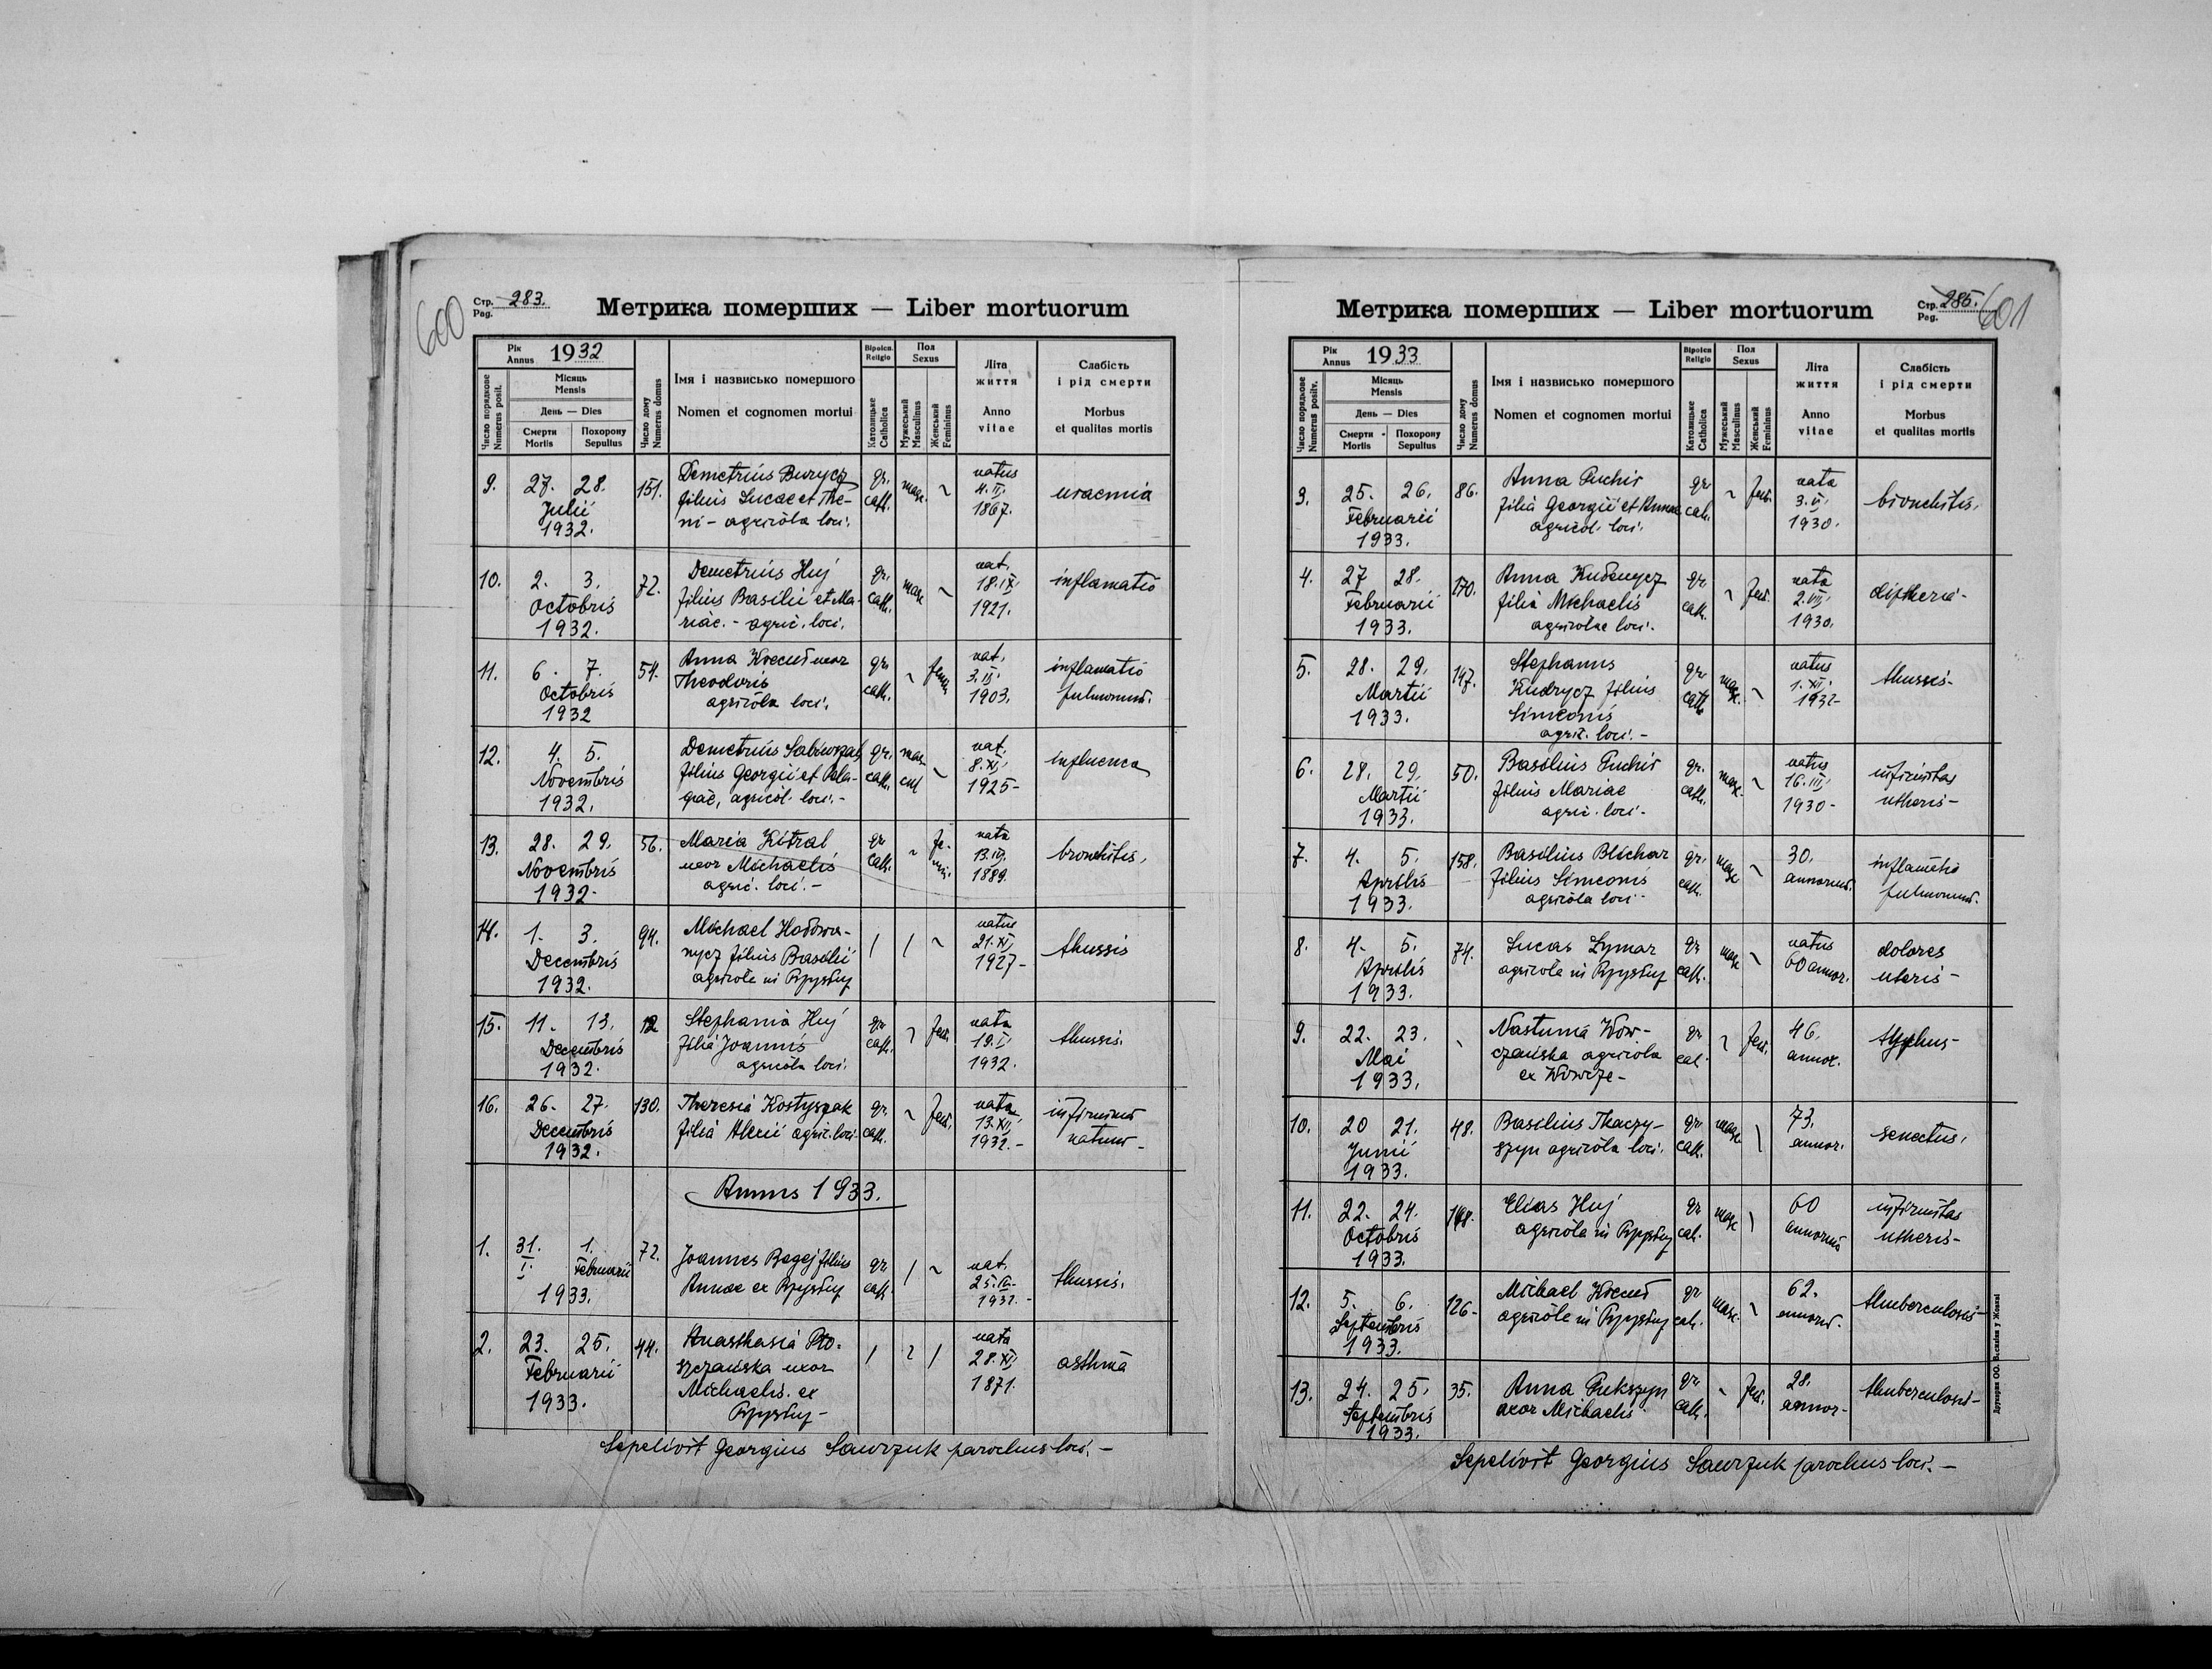 600
Стр. Pag. 283.
Метрика померших — Liber mortuorum
Рік Annus 1932
Число порядкове Numerus posit.
Місяць Mensis
День — Dies
Смерти Mortis
Похорону Sepultus
Число дому Numerus domus
Імя і назвисько помершого
Nomen et cognomen mortui
Віроісп. Religio
Католицьке Catholica
Пол Sexus
Мужеський Masculinus
Женський Femininus
Літа життя
Anno vitae
Слабість і рід смерти
Morbus et qualitas mortis
9. 27. 28. Julii 1932. 151.
Demetrius Burycz
filius Lucae et The-
ni - agricola loci.
gr. cath. masc. ~ natus 4. II. 1867. uraemia
10. 2. 3. Octobris 1932. 72.
Demetrius Huj
filius Basilii et Ma-
riae. - agric. loci.
gr. cath. masc ~ nat. 18. IX. 1921. inflamatio
11. 6. 7. Octobris 1932 54.
Anna Kocur uxor
Theodoris
agricola loci.
gr. cath. ~ femin. nat. 3. III. 1903. inflamatio pulmonum.
12. 4. 5. Novembris 1932.
Demetrius
filius Georgii et Pela-
giae, agricol. loci. -
gr. cath. mas- cul ~ nat. 8. XI. 1925 - influenca
13. 28. 29. Novembris 1932 - 56.
Maria Kitral
uxor Michaelis
agric. loci. -
gr cath. ~ fe- min. nata 13. 1889. bronchitis,
14. 1. 3. Decembris 1932. 94.
Michael Hodowa-
nycz filius Basilii
agricola in Rypysty
/ / ~ natus 21. XI. 1927 - thussis
15. 11. 13. Decembris 1932. 12
Stephania Huj
filia Joannis
agricola loci.
gr cath. ~ fem. nata 19. I. 1932. thussis.
16. 26. 27. Decembris 1932. 130.
Theresia Kostyszak
filia Alexii agric. loci
gr. cath. ~ fem. nata 13. XII. 1932. -
Annus 1933.
1. 31. I. 1. Februarii 1933. 72.
Joannes Begej filius
Annae ex Rypysty
gr cath. / ~ nat. 25. 1932. - thussis.
2. 23. 25. Februarii 1933. 44.
Anasthasia Pło-
szczańska uxor
Michaelis. ex
Rypysty -
/ ~ / nata 28. XI. 1871. asthma
Sepelivit Georgius Sawrzuk parochus loci. -
601
Стр. Pag. 285.
Метрика померших — Liber mortuorum
Рік Annus 1933
Число порядкове Numerus positv.
Місяць Mensis
День — Dies
Смерти Mortis
Похорону Sepultus
Число дому Numerus domus
Імя і назвисько помершого
Nomen et cognomen mortui
Віроісп Religio
Католицьке Catholica
Пол Sexus
Мужеський Masculinus
Женський Femininus
Літа життя
Anno vitae
Слабість і рід смерти
Morbus et qualitas mortis
3. 25. 26. Februarii 1933. 86.
Anna Puchir
filia Georgii et Annae
agricol. loci.
gr. cah. ~ fem. nata 3. VI. 1930. bronchitis.
4. 27 28. Februarii 1933. 170.
Anna
filia Michaelis
agricolae loci.
gr cath. ~ fem. nata 2. VII. 1930. diptheria -
5. 28. 29. Martii 1933. 147.
Stephanus
Kudrycz filius
Simeonis
agric. loci. -
gr. cath. masc. ~ natus 1. XII. 1932 - thussis -
6. 28. 29. Martii 1933. 50.
Basilius Puchir
filius Mariae
agric. loci -
gr. cath. masc. ~ natus 16. III. 1930 - infirmitas utheris -
7. 4. 5. Aprilis 1933. 158.
Basilius Blichar
filius Simeonis
agricola loci -
gr. cath. masc ~ 30. annorum. inflamatio pulmonum.
8. 4. 5. Aprilis 1933. 74.
Lucas Lymar
agricola in Rypysty
gr cath. masc ~ natus 60 annor. dolores uteris -
9. 22. 23. Mai 1933.
Nastunia Wow-
czańska agricola
ex Wowcze -
gr cal. ~ fem. 46. annor. typhus -
10. 20 21. Junii 1933. 48.
Basilius Tkaczy-
szyn agricola loci.
gr. cath. masc. \ 73. annor. senectus.
11. 22. 24. Octobris 1933. 148.
Elias Huj
agricola in Rypysty
gr cal. masc \ 60 annorum infirmitas utheris -
12. 5. 6. Septembris 1933. 126 -
Michael Kocur
agricola in Rypysty
gr cah. masc. ~ 62. annorum. thuberculosis -
13. 24. 25. Septembris 1933. 35.
Anna Pukszyn
uxor Michaelis
gr. cath. ~ fem. 28. annor - thuberculosis -
Sepelivit Georgius Sawrzuk parochus loci. -